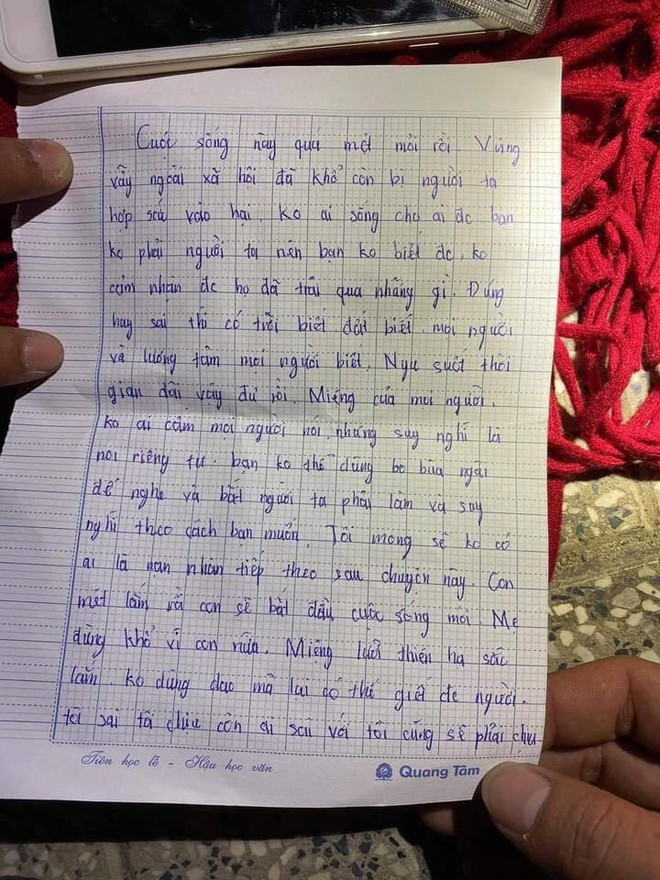 Cuộc sống này quá mệt mỏi rồi. Vùng
vẫy ngoài xã hội đã khổ còn bị người ta
hợp sức vào hại. Ko ai sống cho ai đc bạn
ko phải người ta nên bạn ko biết đc, ko
cảm nhận đc họ đã trải qua những gì. Đúng
hay sai thì có trời biết đất biết, mọi người
và lương tâm mọi người biết. Ngụ suốt thời
gian dài vậy đủ rồi. Miệng của mọi người,
ko ai cấm mọi người nói, nhưng suy nghĩ là
nơi riêng tư. bạn ko thể dùng bỏ bùa ngải
để nghe và bắt người ta phải làm và suy
nghĩ theo cách bạn muốn. Tôi mong sẽ ko có
ai là nạn nhân tiếp theo sau chuyện này. Con
mệt lắm rồi con sẽ bắt đầu cuộc sống mới. Mẹ
đừng khổ vì con nữa. Miệng lưỡi thiên hạ sắc
lắm, ko dùng dao mà lại có thể giết đc người.
tôi sai tôi chịu còn ai sai với tôi cũng sẽ phải chịu
Tiên học lễ - Hậu học văn
Quang Tâm